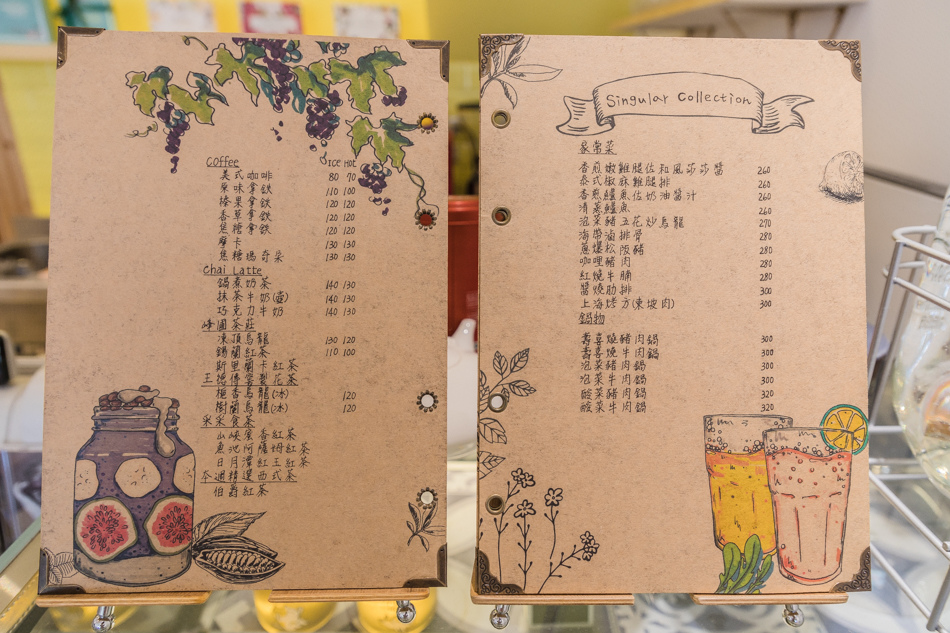 Coffee ICE HOT
美式咖啡 80 70
原味拿鉄 110 100
榛果拿鉄 120 120
香草拿鉄 120 120
焦糖拿鉄 120 120
摩卡 130 130
焦糖瑪奇朵 130 130
Chai Latte
鍋煮奶茶 140 130
抹茶牛奶(壺) 140 130
巧克力牛奶 140 130
峰圃茶莊
凍頂烏龍 130 120
錫蘭紅茶 110 100
斯里蘭卡紅茶
王德傳窨製花茶
梔香烏龍(冰) 120
樹蘭烏龍(冰) 120
采采食茶
山峽蜜香紅茶
魚池阿薩姆紅茶
日月潭紅玉紅茶
本週精選西式茶
伯爵紅茶
Singular Collection
家常菜
香煎嫩雞腿佐和風莎莎醬 260
泰式椒麻雞腿排 260
香煎鱸魚佐奶油醬汁 260
清蒸鱸魚 260
泡菜豬五花炒烏龍 270
海帶滷排骨 280
蔥爆松阪豬 280
咖哩豬肉 280
紅燒牛腩 280
醬燒肋排 300
上海烤方(東坡肉) 300
鍋物
壽喜燒豬肉鍋 300
壽喜燒牛肉鍋 300
泡菜豬肉鍋 300
泡菜牛肉鍋 300
酸菜豬肉鍋 320
酸菜牛肉鍋 320